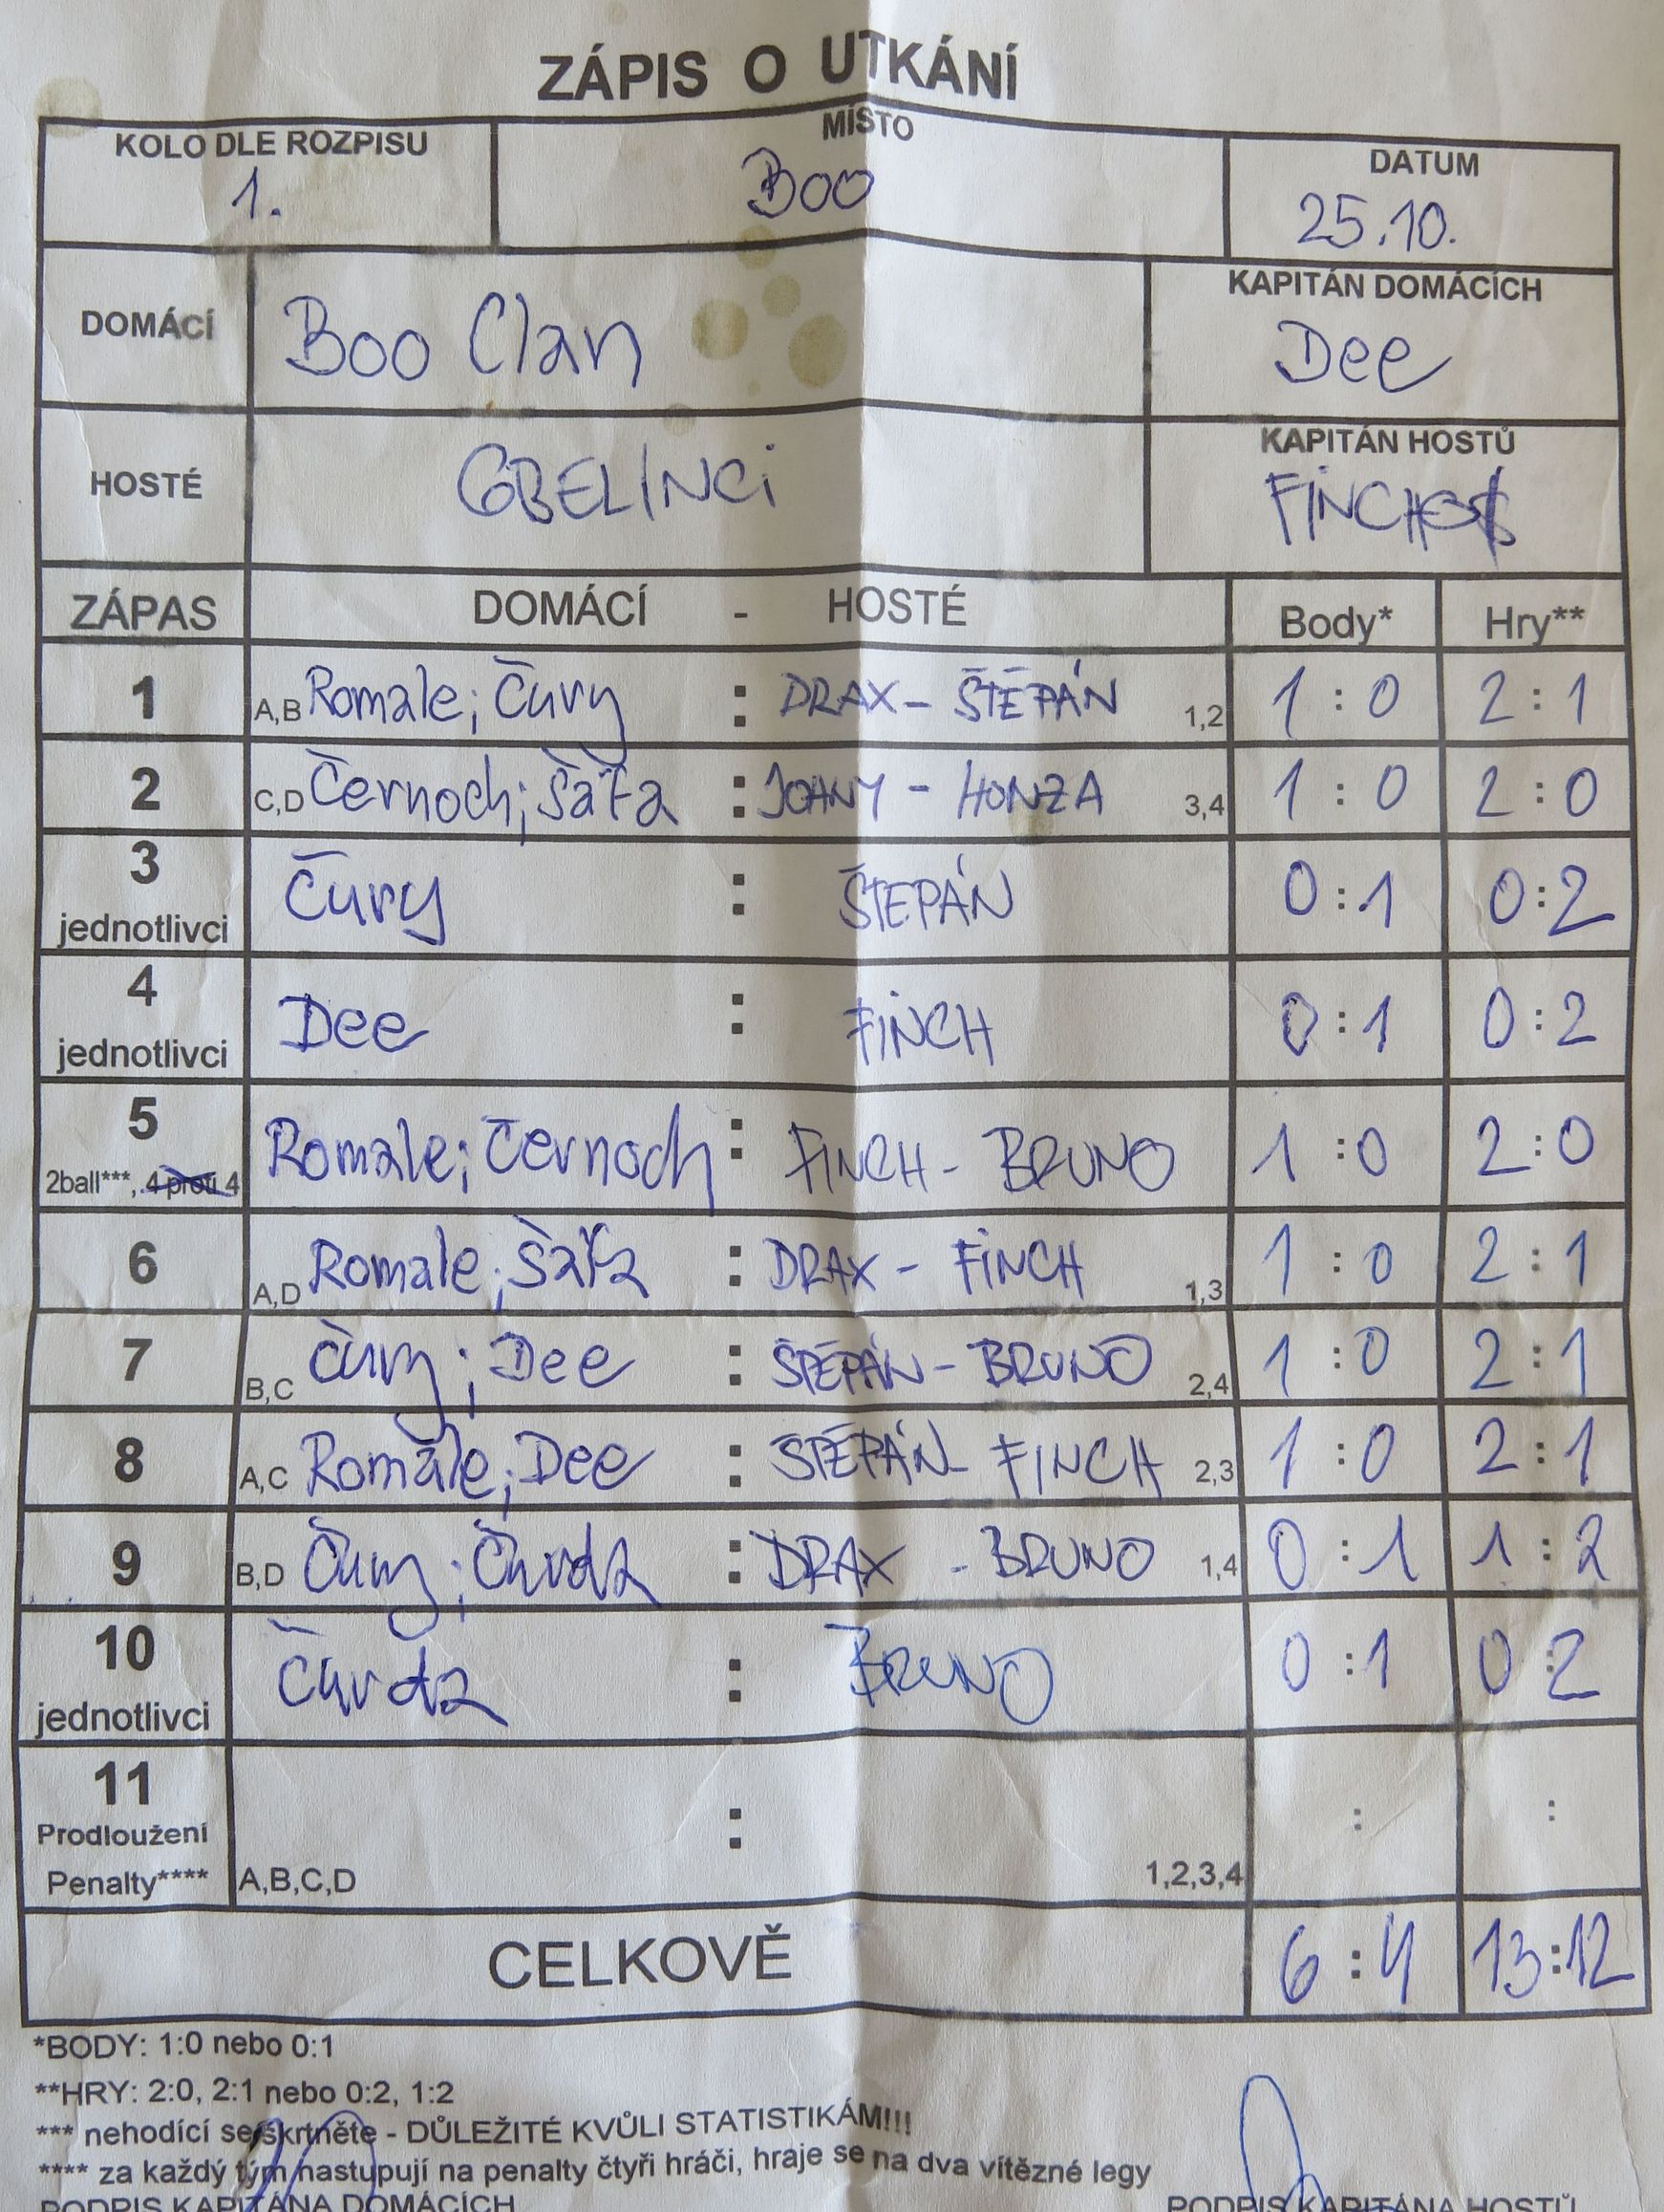 ZÁPIS O UTKÁNÍ
KOLO DLE ROZPISU
1.
MÍSTO
Boo
DATUM
25.10.
DOMÁCÍ
Boo Clan
KAPITÁN DOMÁCÍCH
Dee
HOSTÉ
GBELÍNCI
KAPITÁN HOSTŮ
FINCH
ZÁPAS DOMÁCÍ - HOSTÉ Body* Hry**
1 A,B Romale; Čury : DRAX - ŠTĚPÁN 1,2 1 : 0 2 : 1
2 C,D Černoch; Šářa : JOHNY - HONZA 3,4 1 : 0 2 : 0
3 jednotlivci Čury : ŠTEPÁN 0 : 1 0 : 2
4 jednotlivci Dee : FINCH 0 : 1 0 : 2
5 2ball***, 4 proti 4 Romale; Černoch : FINCH - BRUNO 1 : 0 2 : 0
6 A,D Romale; Šářa : DRAX - FINCH 1,3 1 : 0 2 : 1
7 B,C Čury; Dee : ŠTĚPÁN - BRUNO 2,4 1 : 0 2 : 1
8 A,C Romale; Dee : ŠTĚPÁN - FINCH 2,3 1 : 0 2 : 1
9 B,D Čury; Čurda : DRAX - BRUNO 1,4 0 : 1 1 : 2
10 jednotlivci Čurda : BRUNO 0 : 1 0 : 2
11 Prodloužení Penalty**** A,B,C,D : 1,2,3,4 : :
CELKOVĚ 6 : 4 13 : 12
*BODY: 1:0 nebo 0:1
**HRY: 2:0, 2:1 nebo 0:2, 1:2
*** nehodící se škrtněte - DŮLEŽITÉ KVŮLI STATISTIKÁM!!!
**** za každý tým nastupují na penalty čtyři hráči, hraje se na dva vítězné legy
PODPIS KAPITÁNA DOMÁCÍCH PODPIS KAPITÁNA HOSTŮ